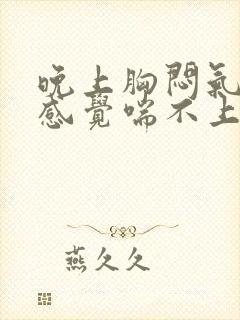 晚上胸悶氣
感覺喘不上
燕久久